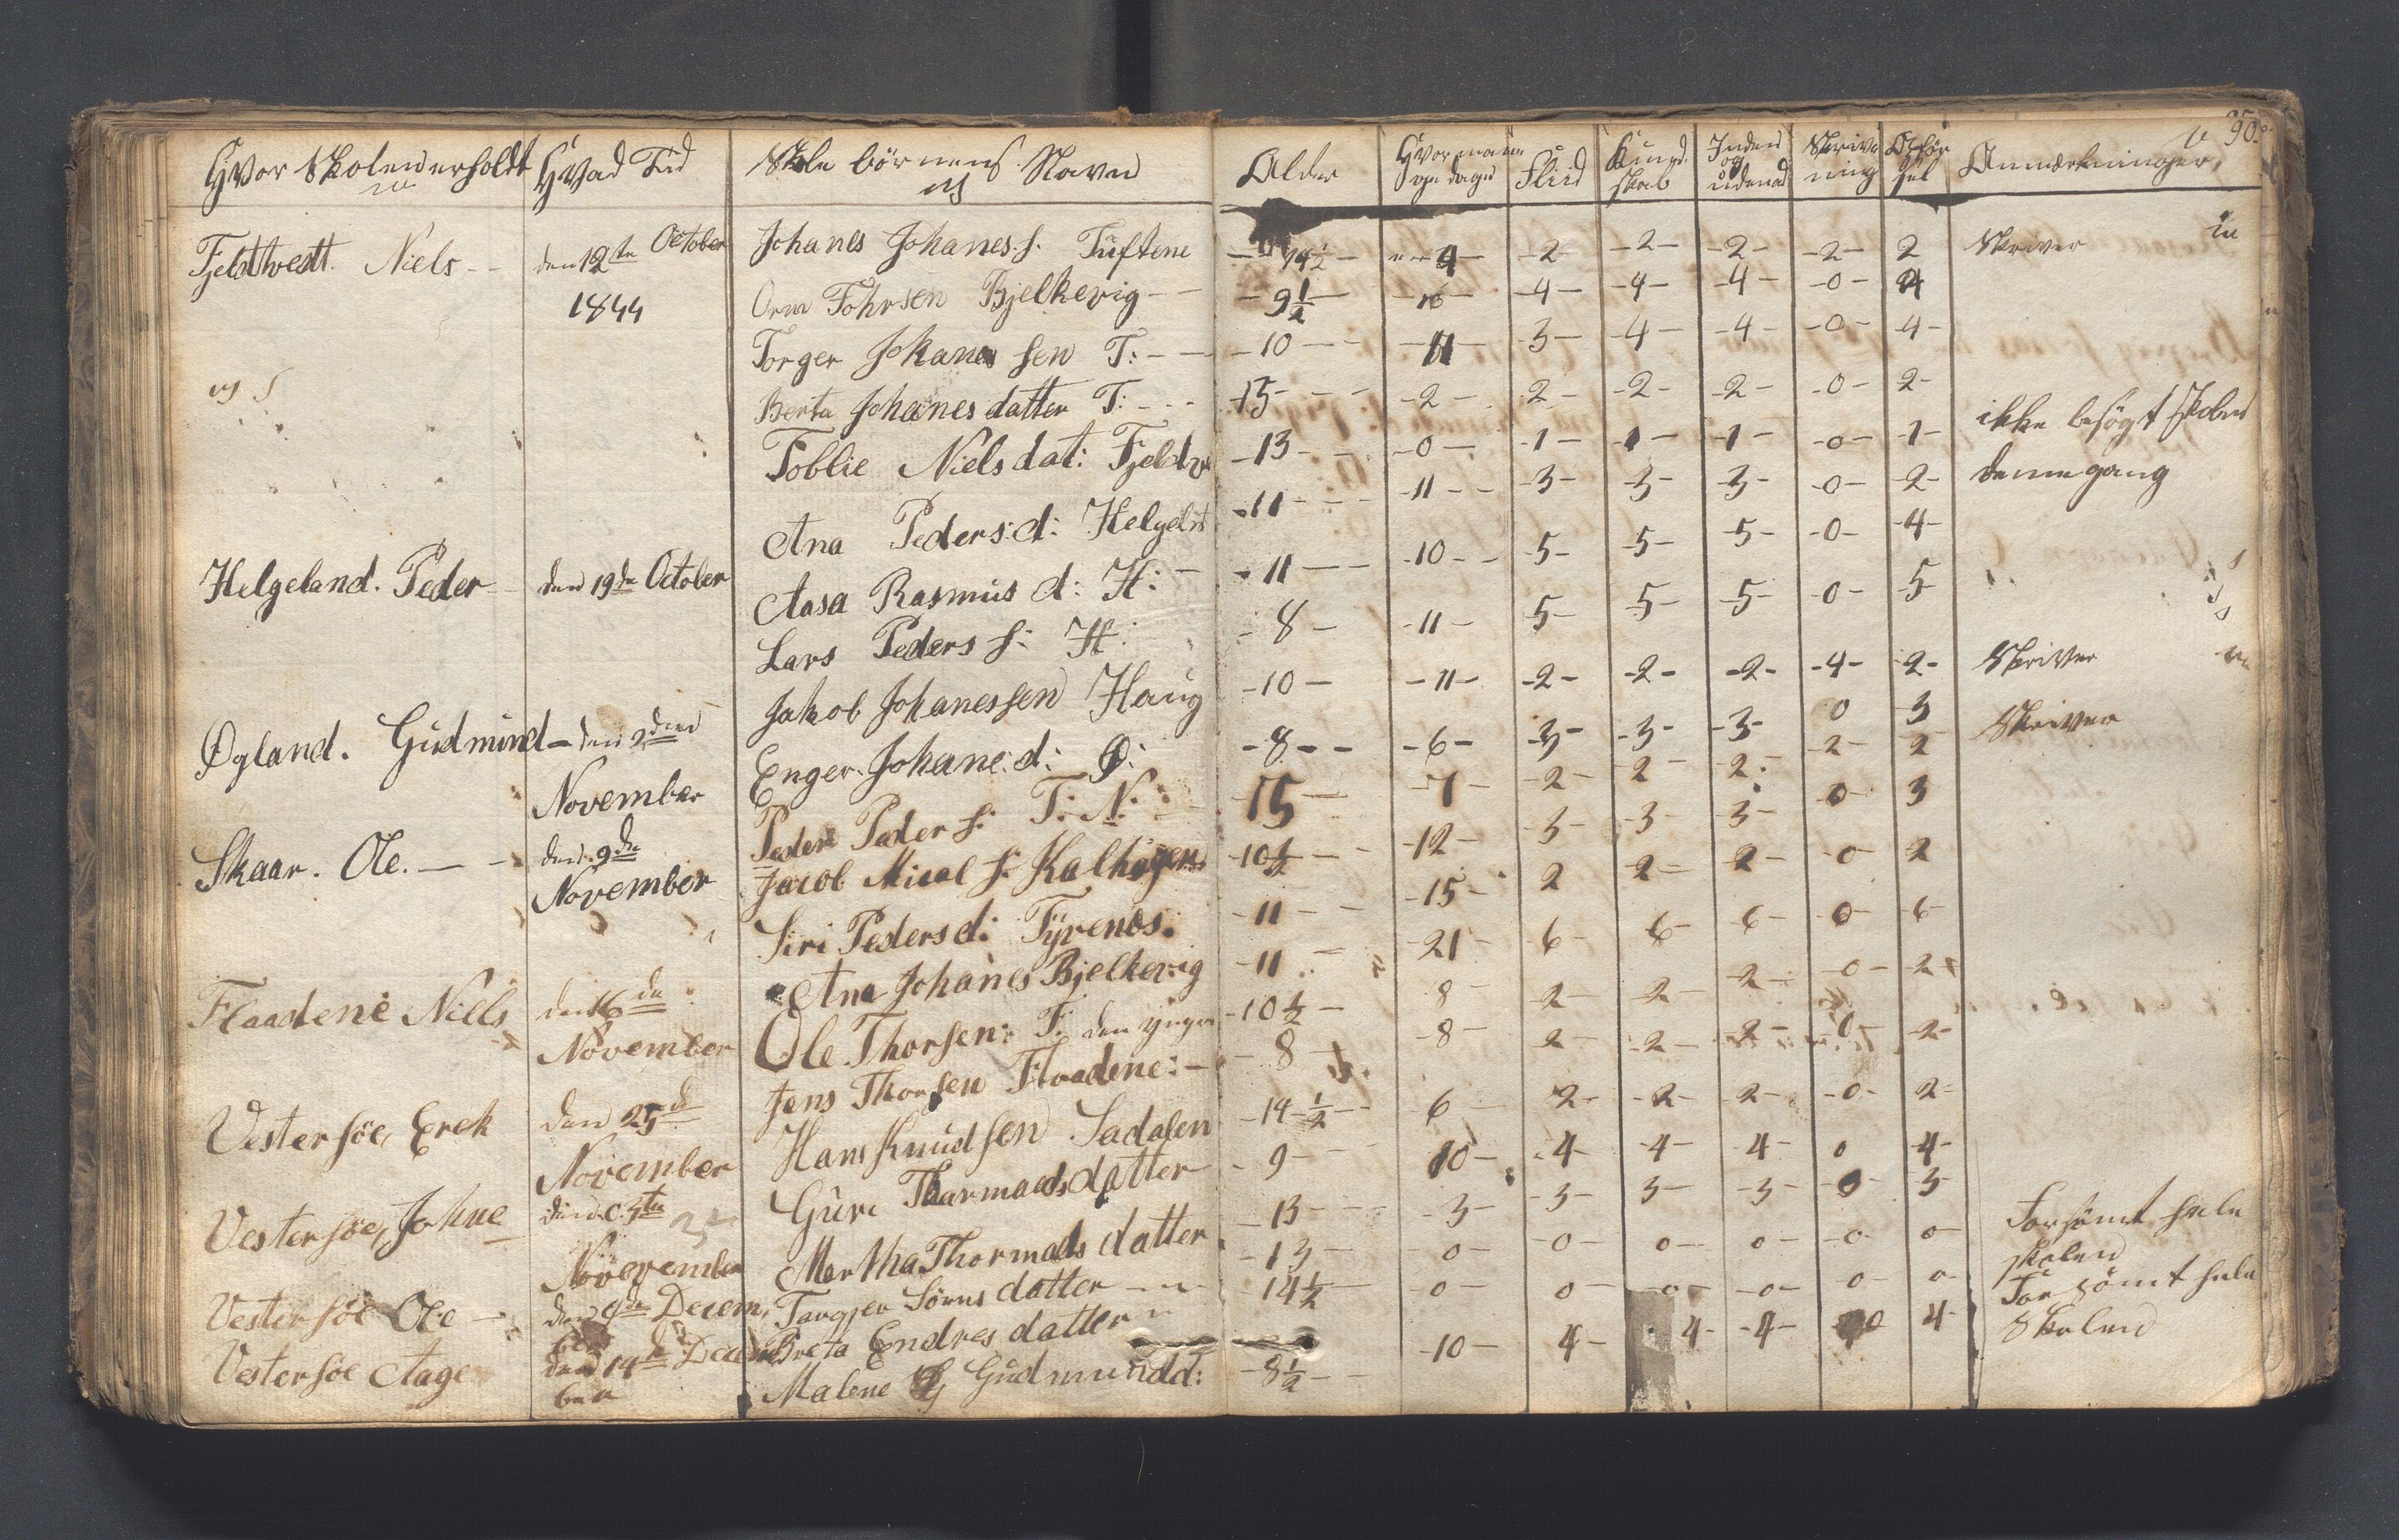 90.
Hvor Skolen erholdt Hvad Tid Skole börnenes Navn Alder Hvormange dage Fliid Kund skab Inden og udenad Skriv ning Opför sel Anmærkninger
Fjeldtvedt. Niels - den 12te October Johanes Johanes s. Tuftene 14½ 4 2 2 2 2 2 Skriver
1844 Orm Tohrsen Bjelkevig 9½ 16 4 4 4 0 4
Torger Johanes sen T: 10 11 3 4 4 0 4
Berta Johanes datter T: 15 2 2 2 2 0 2
Toblie Niels dat: Fjeldv 13 0 1 1 1 0 1 ikke besögt Skolen
Ana Peders: d: Helgeld 11 11 3 3 3 0 2 dennegang
Helgeland. Peder den 19de October Aasa Rasmus d: H: 11 10 5 5 5 0 4
Lars Peders s: H: 8 11 5 5 5 0 5
Jakob Johanessen Haug 10 11 2 2 2 4 2 Skriver
Øgland. Gudmund - den 2den Enger Johane: d: Ø: 8 6 3 3 3 0 3 Skriver
November Peder Peder s: T: N: 15 7 2 2 2 2 2
Skaar. Ole. den 9de Jacob Micel s: Kalhagen 10½ 12 3 3 3 0 3
November Siri Peders d: Tyrenes. 11 15 2 2 2 0 2
Ana Johanes Bjelkevig 11 21 6 6 6 0 6
Flaadene Niels den 16de Ole Thorsen: F: den yngre 10½ 8 2 2 2 0 2
November Jens Thorsen Flaadene: 8 8 2 2 2 0 2
Vestersöe, Erek den 25d Hans Knudsen Sadalen 14½ 6 2 2 2 0 2
November Guri Tharmaadsdatter 9 10 4 4 4 0 4
Vestersöe, Johne Martha Thormads datter 13 3 3 3 3 0 3 Forsömt hele
November Targjer Sörens datter 13 0 0 0 0 0 0 skolen
Vestersöe Ole den 9de Decem, Breta Endres datter 14½ 0 0 0 0 0 0 Forsömt hele
ber
Vestersöe Aage den 14de Decem Malene G Gudmundd: 8½ 10 4 4 4 0 4 Skolen
ber